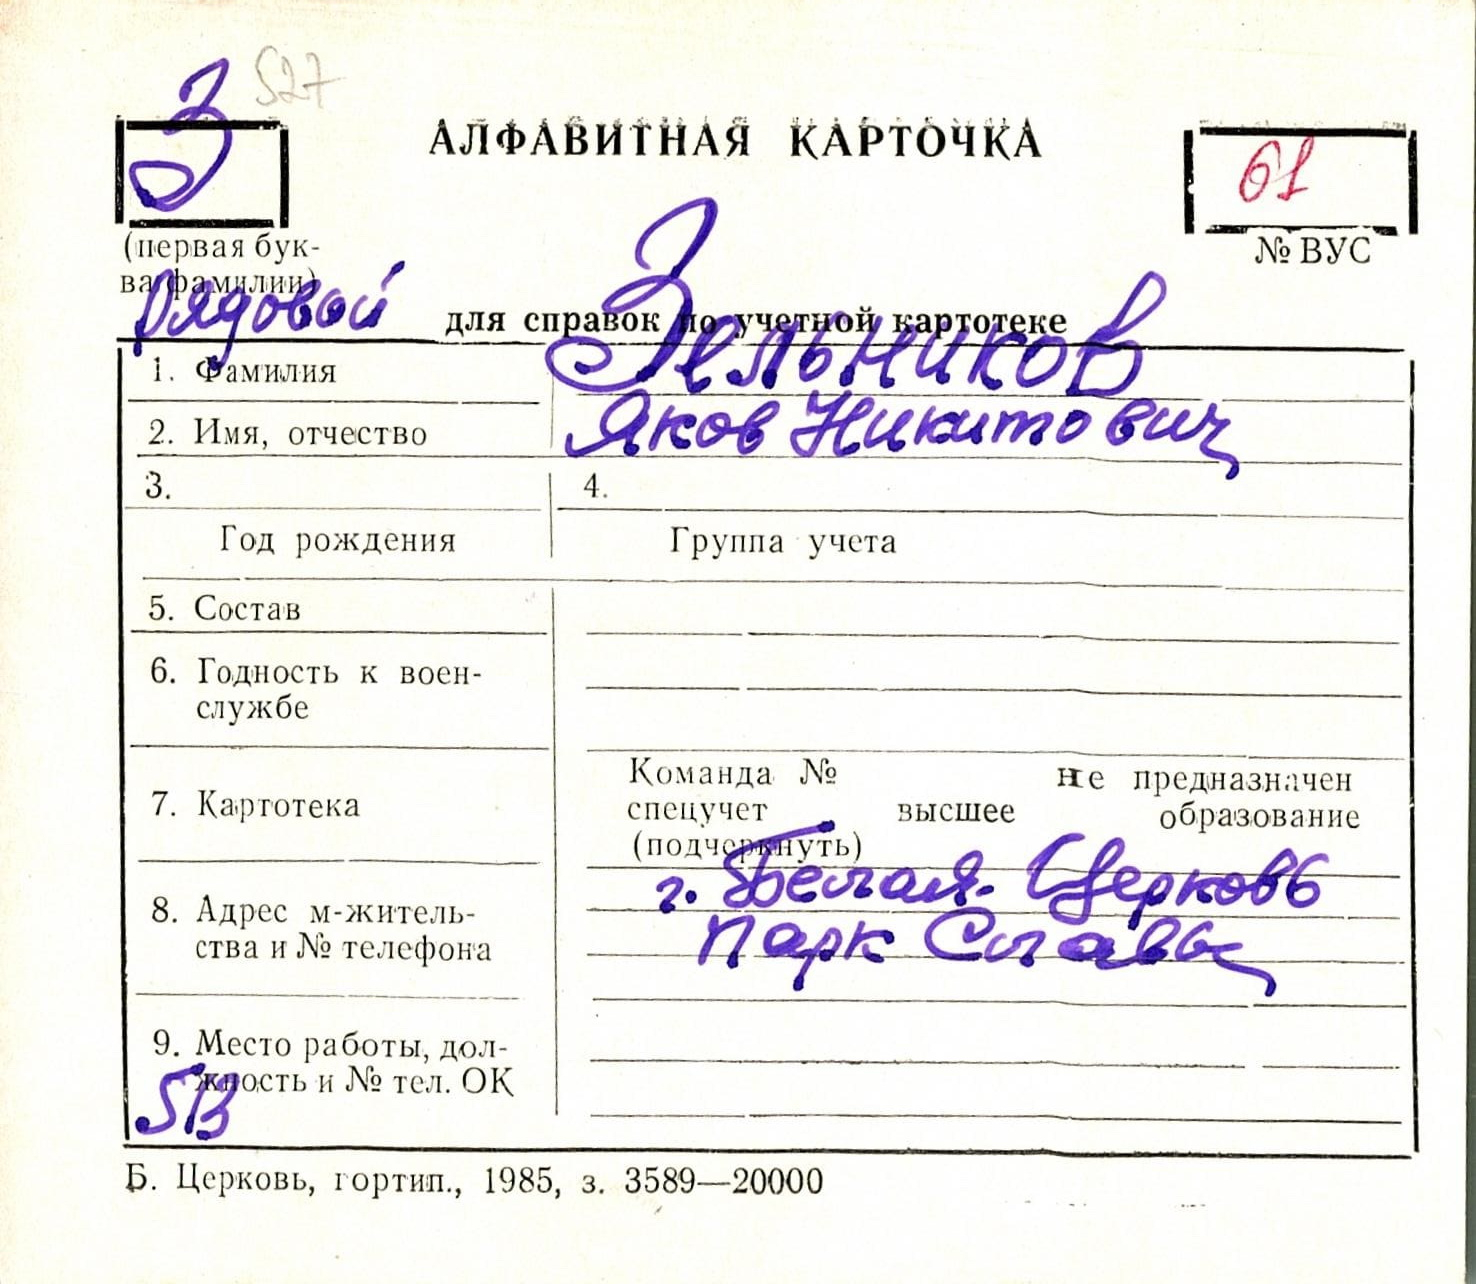 З 527
АЛФАВИТНАЯ КАРТОЧКА
61
(первая бук-
ва фамилии)
№ ВУС
Рядовой
для справок по учетной картотеке
1. Фамилия Зельников
2. Имя, отчество Яков Никитович
3. 4.
Год рождения Группа учета
5. Состав
6. Годность к воен-
службе
7. Картотека
Команда № не предназначен
спецучет высшее образование
(подчеркнуть)
8. Адрес м-житель-
ства и № телефона
г. Белая-Церковь
Парк Славы
9. Место работы, дол-
жность и № тел. ОК
Б. Церковь, гортип., 1985, з. 3589—20000